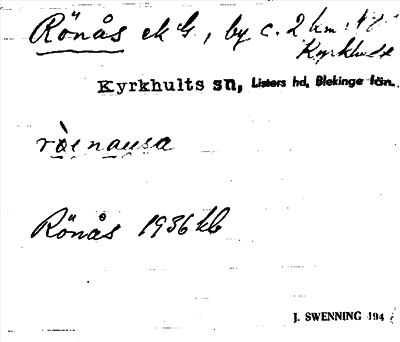 Rönås ek G, by c. 2 km
Kyrkhult
Kyrkhults sn, Listers hd, Blekinge län.
Rönås 1936 kb
J. SWENNING 194